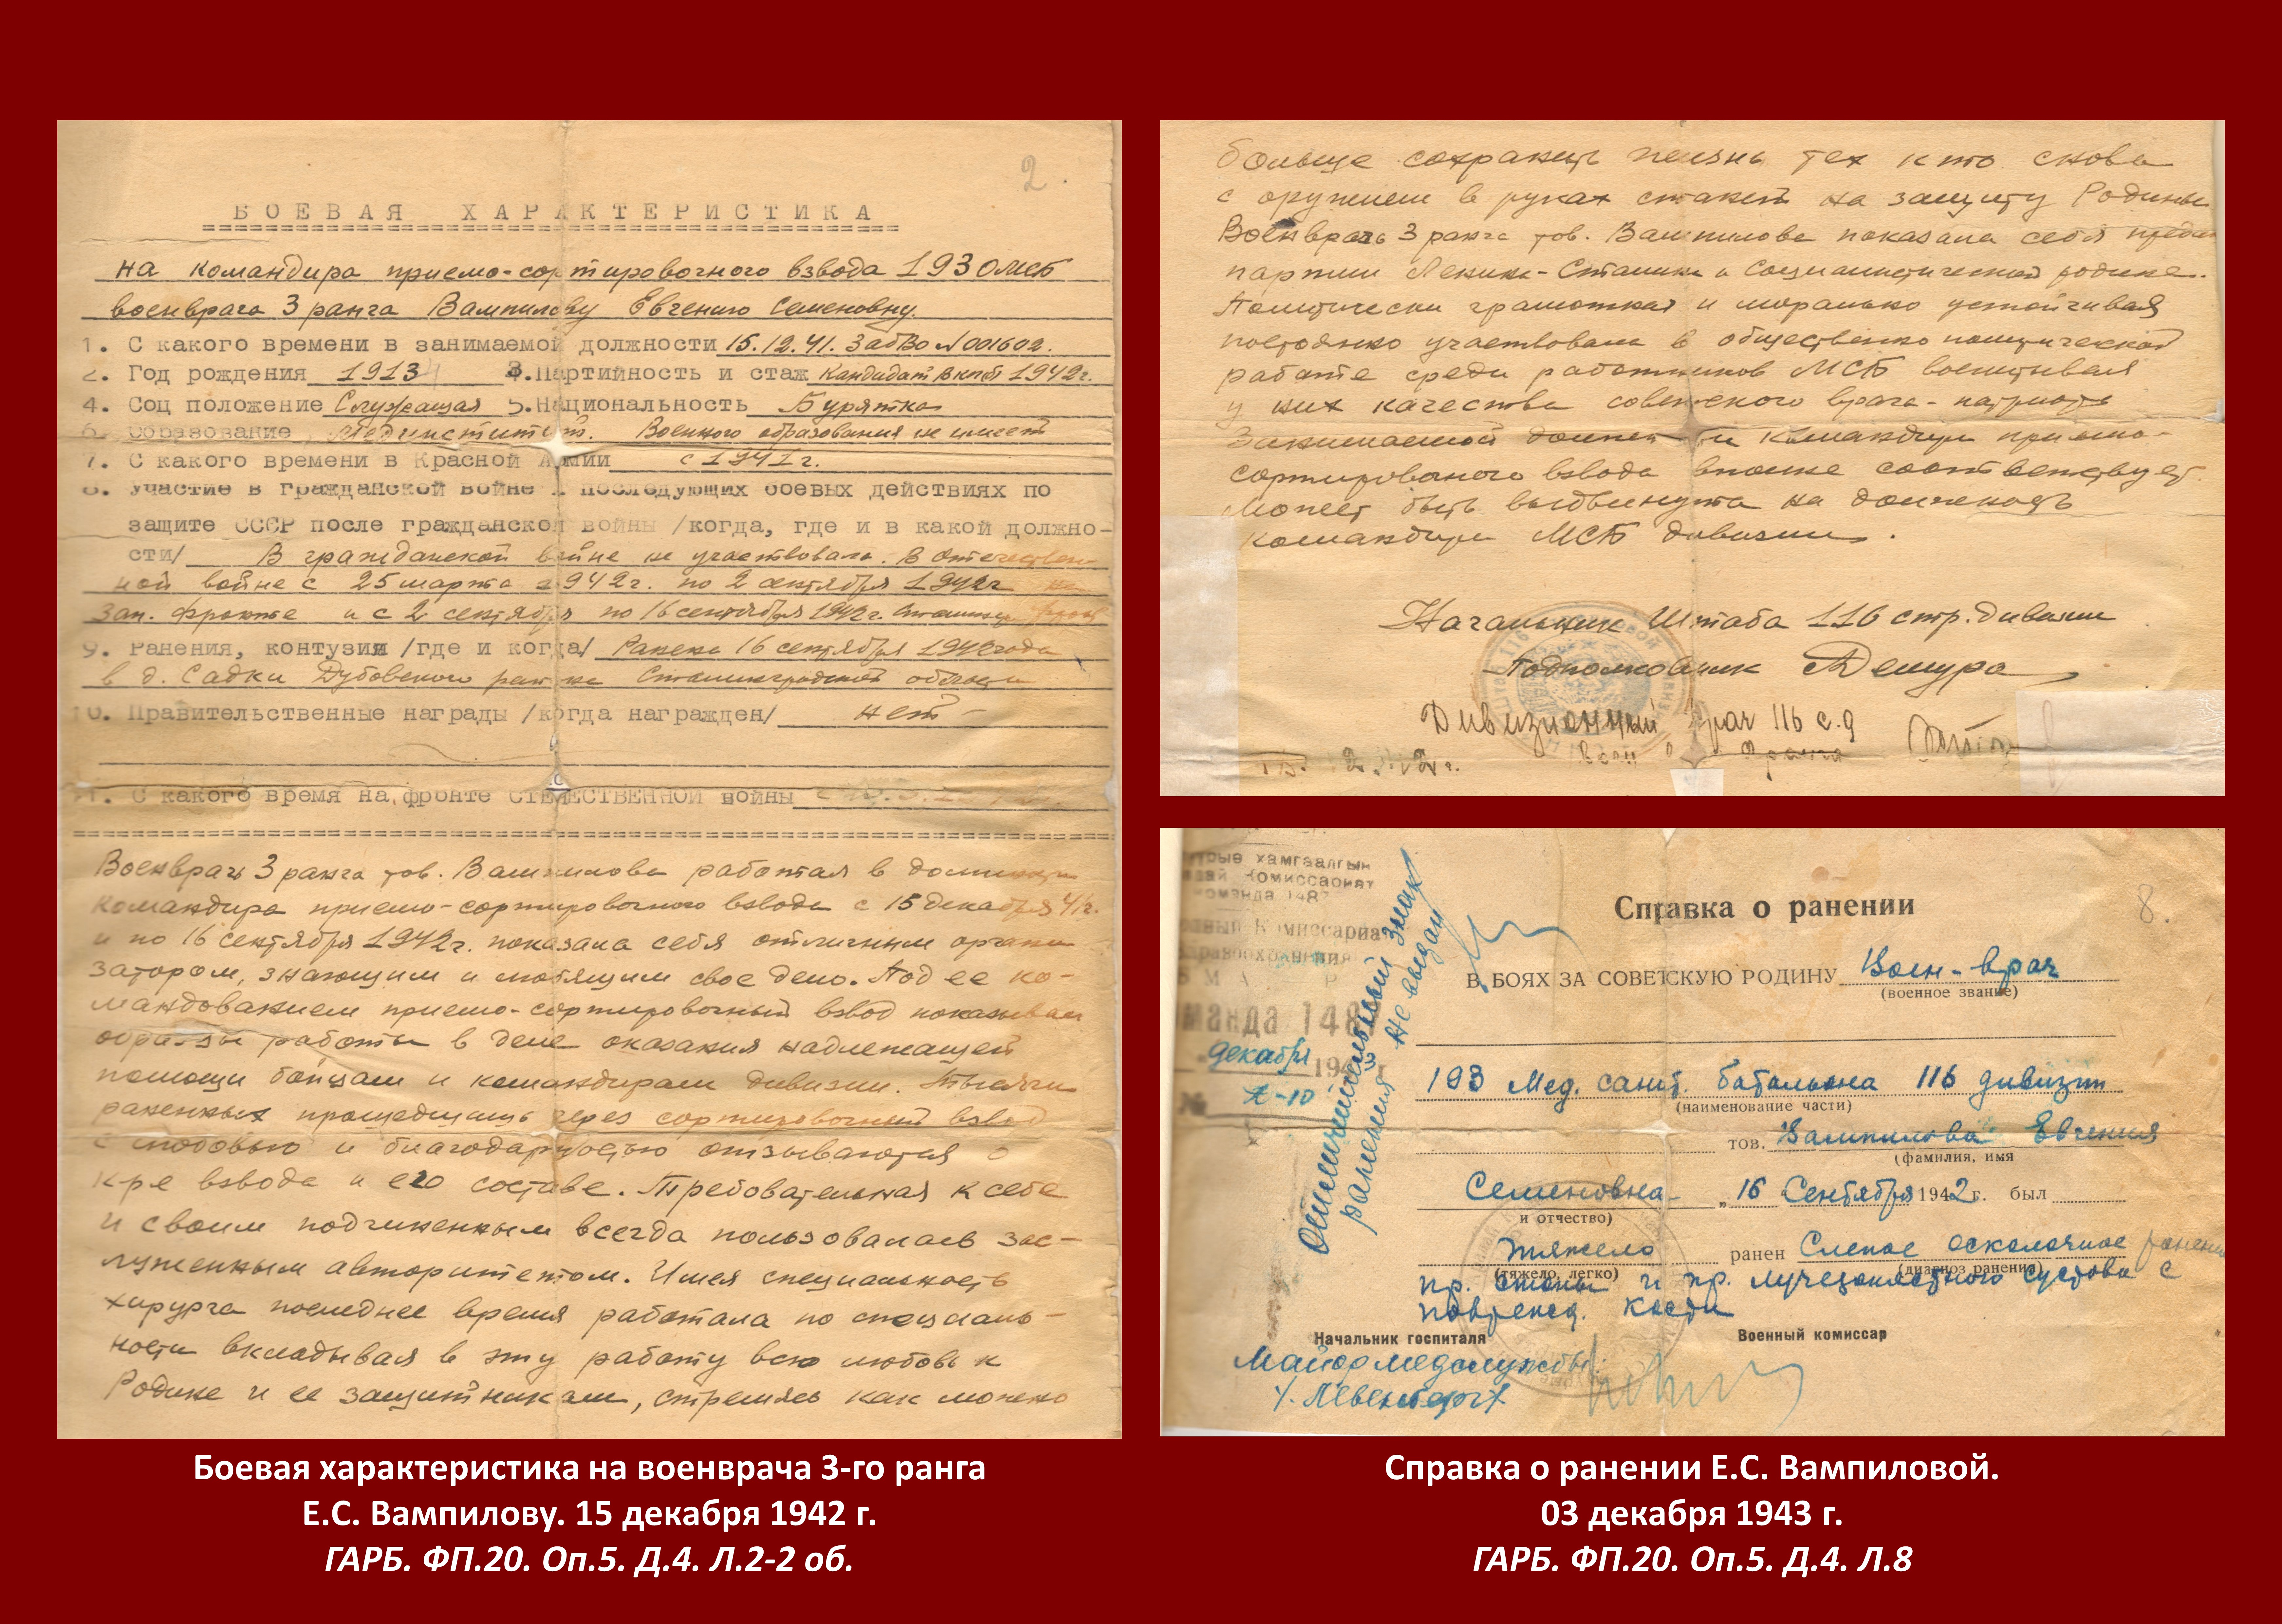 2.
БОЕВАЯ ХАРАКТЕРИСТИКА
на командира приемо-сортировочного взвода 193 омсб
военврача 3 ранга Вампилову Евгению Семеновну.
1. С какого времени в занимаемой должности 15.12.41. ЗабВо №001602.
2. Год рождения 1913 3.Партийность и стаж кандидат вкпб 1942г.
4. Соц положение Служащая 5.Национальность Бурятка
6. Образование Мединститут. Военного образования не имеет
7. С какого времени в Красной Армии с 1941г.
8. Участие в гражданской войне и последующих боевых действиях по
защите СССР после гражданской войны /когда, где и в какой должно-
сти/ В гражданской войне не участвовала. В Отечествен-
ной войне с 25 марта 1942г. по 2 сентября 1942г на
Зап. фронте и с 2 сентября по 16 сентября 1942г. Сталингр фронт
9. Ранения, контузии /где и когда/ Ранена 16 сентября 1942года
в д. Садки Дубовского района Сталинградской области
10. Правительственные награды /когда награжден/ нет -
11. С какого время на фронте ОТЕЧЕСТВЕННОЙ войны
Военврач 3 ранга тов. Вампилова работая в должности
командира приемо-сортировочного взвода с 15 декабря 41г.
и по 16 сентября 1942г. показала себя отличным органи
затором, знающим и любящим свое дело. Под ее ко-
мандованием приемо-сортировочный взвод показывал
образцы работы в деле оказания надлежащей
помощи бойцам и командирам дивизии. Тысячи
раненных прошедших через сортировочный взвод
с любовью и благодарностью отзываются о
к-ре взвода и его составе. Требовательная к себе
и своим подчиненным всегда пользовалась зас-
луженным авторитетом. Имея специальность
хирурга последнее время работала по специаль-
ности вкладывая в эту работу всю любовь к
Родине и ее защитникам, стремясь как можно
Боевая характеристика на военврача 3-го ранга
Е.С. Вампилову. 15 декабря 1942 г.
ГАРБ. ФП.20. Оп.5. Д.4. Л.2-2 об.
больше сохранить жизнь тех кто снова
с оружием в руках станет на защиту Родины
Военврач 3 ранга тов. Вампилова показала себя предан
партии Ленина-Сталина и Социалистической родине.
Политически грамотная и морально устойчивая
постоянно участвовала в общественно политической
работе среди работников МСБ воспитывая
у них качества советского врача-патриота
Занимаемой должности командира приемо-
сортировочного взвода вполне соответствует.
Может быть выдвинута на должность
командира МСБ дивизии.
Начальник Штаба 116 стр. дивизии
Подполковник Демура
Дивизионный врач 116 с.д
Воен врач ранга
хамгаалгын
Комиссариат
команда 148
Комиссариат
здравоохранения
команда 148
декабря 194
№ А-10
Отличительный знак
ранения не выдан
8.
Справка о ранении
В БОЯХ ЗА СОВЕТСКУЮ РОДИНУ Воен-врач
(военное звание)
193 Мед. санит. батальона 116 дивизии
(наименование части)
тов. Вампилова Евгения
(фамилия, имя
Семеновна „16 Сентября 1942г. был
и отчество)
тяжело ранен Слепое осколочное ранение
(тяжело, легко) (диагноз ранения)
пр. стопы и пр. лучезапястного сустава с
поврежд. кости
Начальник госпиталя Военный комиссар
Майор медслужбы
Справка о ранении Е.С. Вампиловой.
03 декабря 1943 г.
ГАРБ. ФП.20. Оп.5. Д.4. Л.8